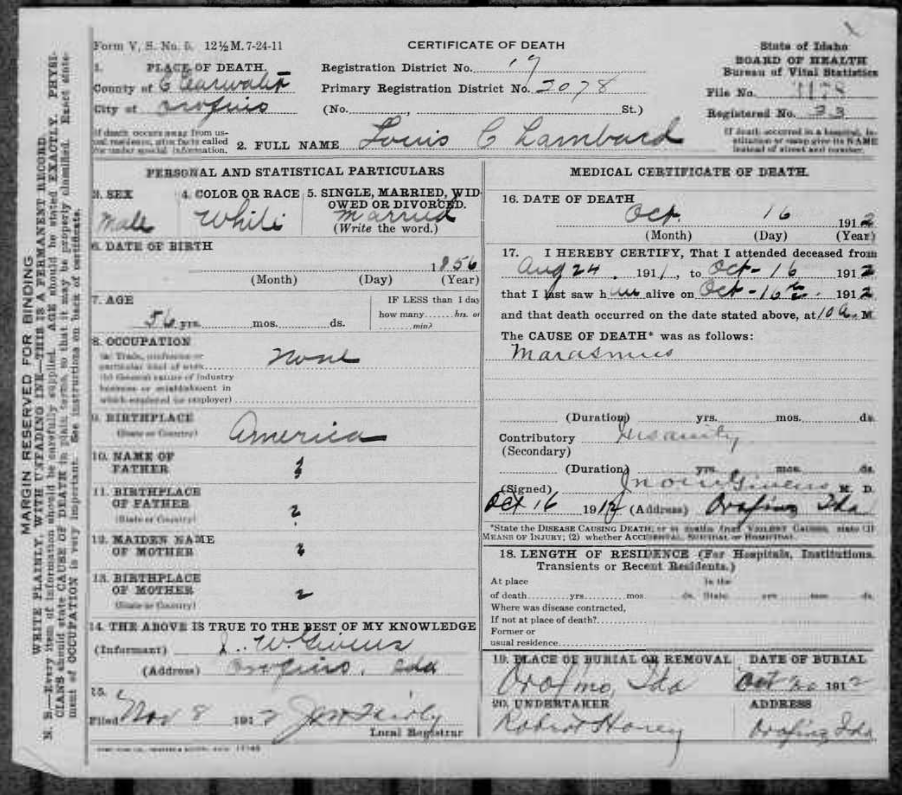 Form V. S. No. 5. 12½M. 7-24-11
CERTIFICATE OF DEATH
State of Idaho
BOARD OF HEALTH
Bureau of Vital Statistics
1. PLACE OF DEATH.
County of Clearwater
City of Orofino
Registration District No. 19
Primary Registration District No. 2078
(No. , St.)
File No.
Registered No. 33
If death occurs away from usual residence, give facts called for under special information.
If death occurred in a hospital, institution or camp give its NAME instead of street and number.
2. FULL NAME Louis C Lambard
PERSONAL AND STATISTICAL PARTICULARS
3. SEX
Male
4. COLOR OR RACE
White
5. SINGLE, MARRIED, WIDOWED OR DIVORCED.
Married
(Write the word.)
6. DATE OF BIRTH
1856
(Month) (Day) (Year)
7. AGE
56 yrs. mos. ds.
IF LESS than 1 day
how many hrs. or
min?
8. OCCUPATION
None
(a) Trade, profession or
particular kind of work
(b) General nature of industry
business or establishment in
which employed (or employer)
9. BIRTHPLACE
(State or Country)
America
10. NAME OF
FATHER
?
11. BIRTHPLACE
OF FATHER
(State or Country)
?
12. MAIDEN NAME
OF MOTHER
?
13. BIRTHPLACE
OF MOTHER
(State or Country)
?
14. THE ABOVE IS TRUE TO THE BEST OF MY KNOWLEDGE
(Informant) J. W. Givens
(Address) Orofino, Ida
15.
Filed Nov 8 1912
Local Registrar
MEDICAL CERTIFICATE OF DEATH.
16. DATE OF DEATH
Oct. 16 1912
(Month) (Day) (Year)
17. I HEREBY CERTIFY, That I attended deceased from
Aug 24, 1911, to Oct-16 1912
that I last saw him alive on Oct-16th. 1912
and that death occurred on the date stated above, at 10 a. M
The CAUSE OF DEATH* was as follows:
Marasmus
(Duration) yrs. mos. ds.
Contributory Insanity
(Secondary)
(Duration) yrs. mos. ds.
(Signed) Givens M. D.
Oct 16 1912 (Address) Orofino Ida
*State the DISEASE CAUSING DEATH; or in deaths from VIOLENT CAUSES, state (1)
MEANS OF INJURY; (2) whether ACCIDENTAL, SUICIDAL or HOMICIDAL.
18. LENGTH OF RESIDENCE (For Hospitals, Institutions.
Transients or Recent Residents.)
At place In the
of death yrs. mos. ds. State yrs. mos. ds.
Where was disease contracted,
If not at place of death?
Former or
usual residence
19. PLACE OF BURIAL OR REMOVAL
Orofino, Ida
DATE OF BURIAL
Oct 20 1912
20. UNDERTAKER
Robert Honey
ADDRESS
Orofino, Ida
MARGIN RESERVED FOR BINDING
WRITE PLAINLY, WITH UNFADING INK—THIS IS A PERMANENT RECORD
N. B.—Every item of information should be carefully supplied. AGE should be stated EXACTLY. PHYSI-
CIANS should state CAUSE OF DEATH in plain terms, so that it may be properly classified. Exact state-
ment of OCCUPATION is very important. See instructions on back of certificate.